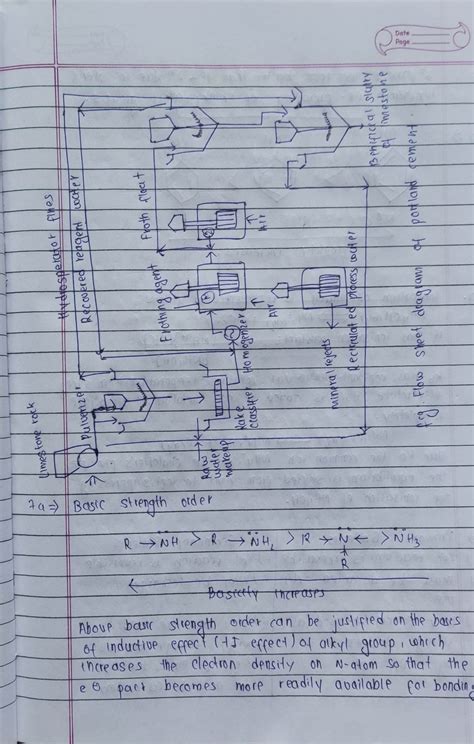 Date
Page
Hydroseperator fines
Recovered reagent water
Froth float
Frothing agent
Air
Air
Homogenizer
Mineral rejects
Recirculated process water
Beneficial slurry
of limestone
Limestone rock
Pulvorizer
Rake
classifier
Raw
water
makeup
fig. Flow sheet diagram of portland cement.
7a⇒) Basic strength order
R → N̈H > R → N̈H₂ > R → N̈ ← > N̈H₃
R
Basicity increases
Above basic strength order can be justified on the bases
of inductive effect (+I effect) of alkyl group, which
increases the electron density on N-atom so that the
e⊖ pair becomes more readily available for bonding